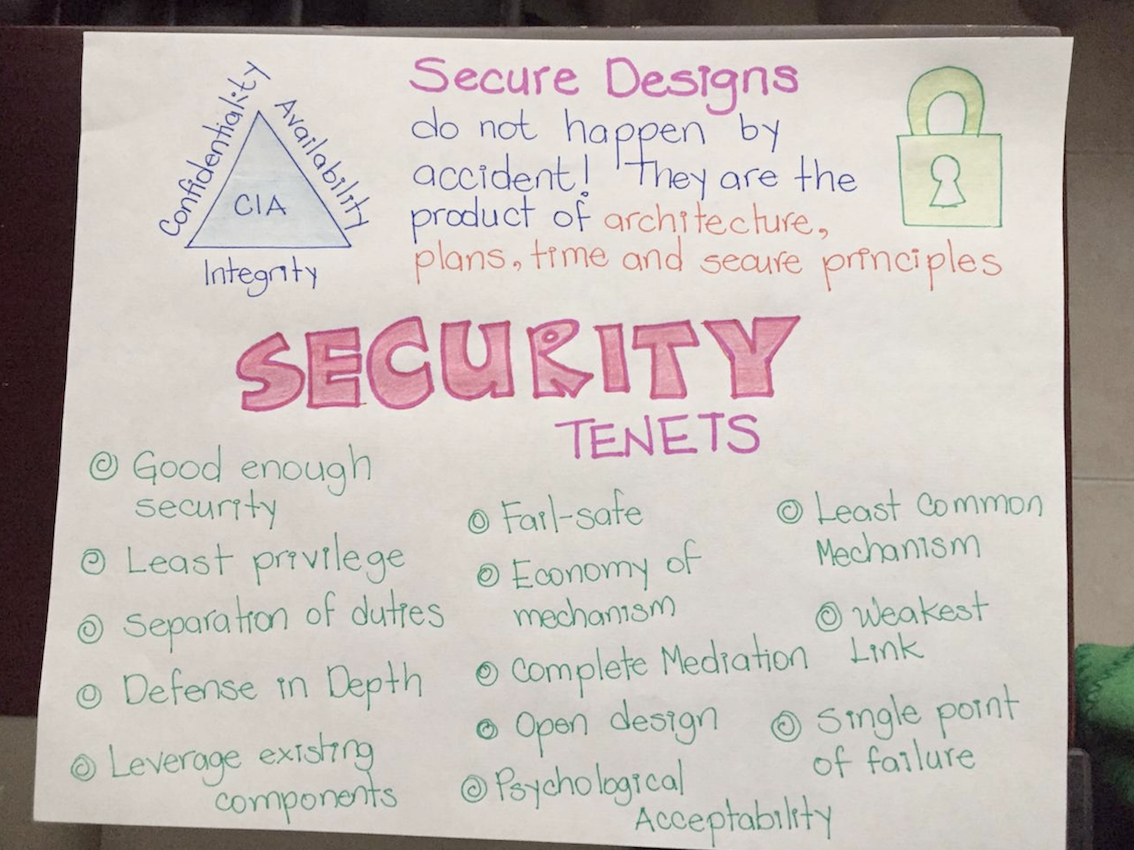 Confidentiality
Availability
CIA
Integrity
Secure Designs
do not happen by
accident! They are the
product of architecture,
plans, time and secure principles
SECURITY
TENETS
Good enough
security
Least privilege
Separation of duties
Defense in Depth
Leverage existing
components
Fail-safe
Economy of
mechanism
Complete Mediation
Open design
Psychological
Acceptability
Least Common
Mechanism
Weakest
Link
Single point
of failure